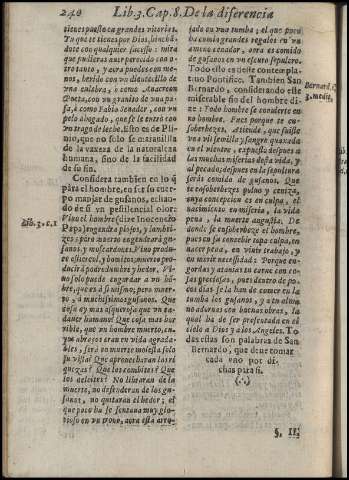 240 Lib.3.Cap.8.De la diferencia
tienes puesto ca grandes vitorias.
Tu que te tienes por Dios, hinchá-
dote con qualquier sucesso: mira
que pudieras auer perecido con
otro tanto, y aora puedes con me-
nos, herido con vn dientecillo de
vna culebra, ò como Anacreon
Poeta, con vn granito de vna pa-
sa, ò como Fabio Senador, con vn
pelo ahogado, que se le entrò con
vn trago de leche. Esto es de Pli-
nio, que no solo se marauilla
de la vaxeza de la naturaleza
humana, sino de la facilidad
de su fin.
Considera tambien en lo q̃
para el hombre, en ser su cuer-
po manjar de gusanos, echan-
do de sì vn pestilencial olor:
Viuo el hombre (dize Inocencio
Papa) engendra piojos, y lombri-
zes; pero muerto engendrarà gu-
sanos, y moscardones. Viuo produ-
ce estiercol, y bomitos; muerto pro-
ducirà podredumbre y hedor. Viuo
no solo puede engordar a vn hõ-
bre, que es a sì mismo; pero muer-
to, à muchissimos gusanos. Que
cosa ay mas asquerosa que vn ca-
dauer humano? Que cosa mas hor-
rible, que vn hombre muerto, cu-
yos abraços eran en vida agrada-
bles, serà en muerte molesta solo
su vista? Que aprouecharan las ri-
quezas? Que los combites? Que
los deleites? No libraràn de la
muerte, no defenderàn de los
gusanos, no quitaràn el hedor; el
que poco ha se sentaua muy glo-
rioso en vn trono, aora està arro-
jado en vna tumba; el que poco
ha comia grandes regalos en vn
ameno cenador, aora es comido
de gusanos en vn escuro sepulcro.
Todo esto es deste contempla-
tiuo Pontifice. Tambien San
Bernardo, considerando este
miserable fin del hombre di-
ze: Todo hombre se conuierte en
nada. Pues porque te en-
soberueces. Atiende, que fuiste
vna vil semilla, y sangre quaxada
en el vientre, despues expuesto a
las muchas miserias desta vida, y
al pecado; despues en la sepultura
seràs comida de gusanos. Que
te ensoberueces poluo y ceniza,
cuya concepcion es en culpa, el
nacimiento en miseria, la vida
pena, la muerte angustia. De
donde se ensoberuece el hombre,
pues en su concebir topa culpa, en
nacer pena, en viuir trabajo, en
morir necessidad: Porque en-
gordas y atauias tu carne con co-
sas preciosas, pues dentro de po-
cos dias se la han de comer en la
tumba los gusanos, y a tu alma
no adornas con buenas obras, la
qual ha de ser presentada en el
cielo a Dios, y a los Angeles. To-
das estas son palabras de San
Bernardo, que deue tomar
cada vno por di-
chas para sì.
(∴)
§. II.
Lib. 3. c. 1
Bernard.
3. medit.